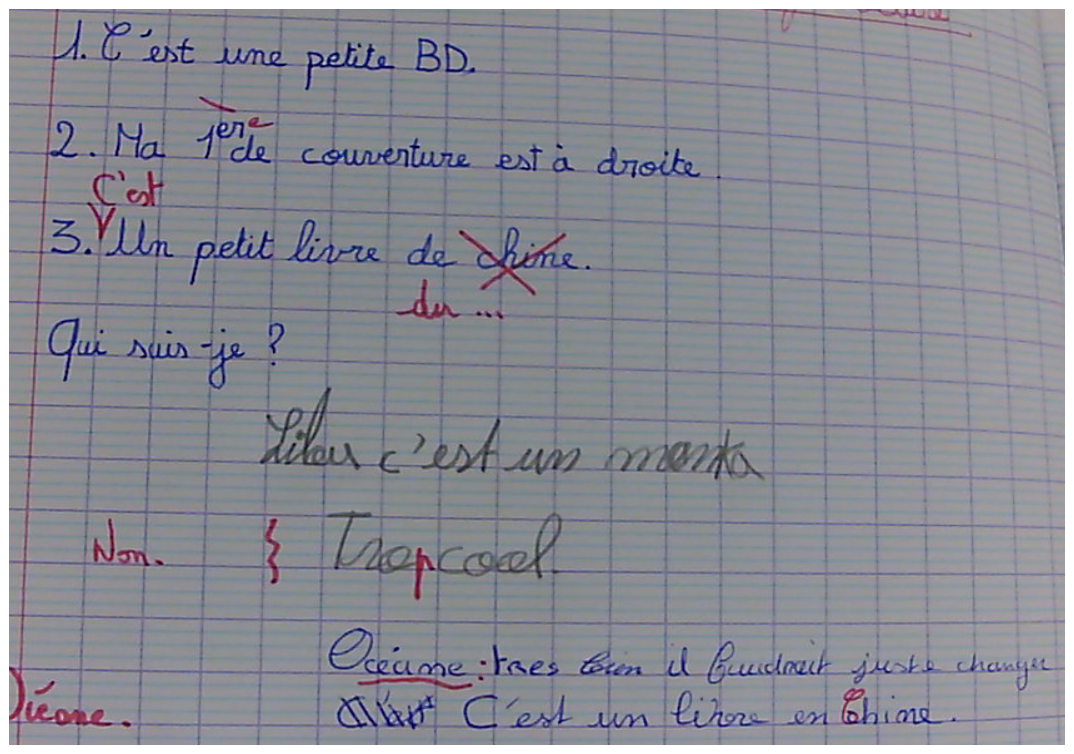 1. C'est une petite BD.
2. Ma 1ère de couverture est à droite.
C'est
3. Un petit livre de chine.
du ...
Qui suis-je ?
Lilou c'est un manta
Non. } Trop cool.
Océane : tres bien il faudrait juste changer
C'est un livre en Chine.